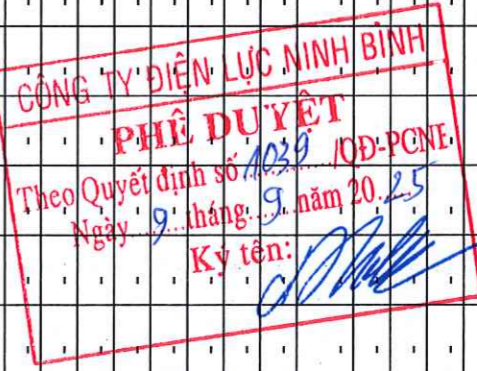 CÔNG TY ĐIỆN LỰC NINH BÌNH
PHÊ DUYỆT
Theo Quyết định số 1039 /QĐ-PCNB
Ngày 9 tháng 9 năm 2025
Ký tên: